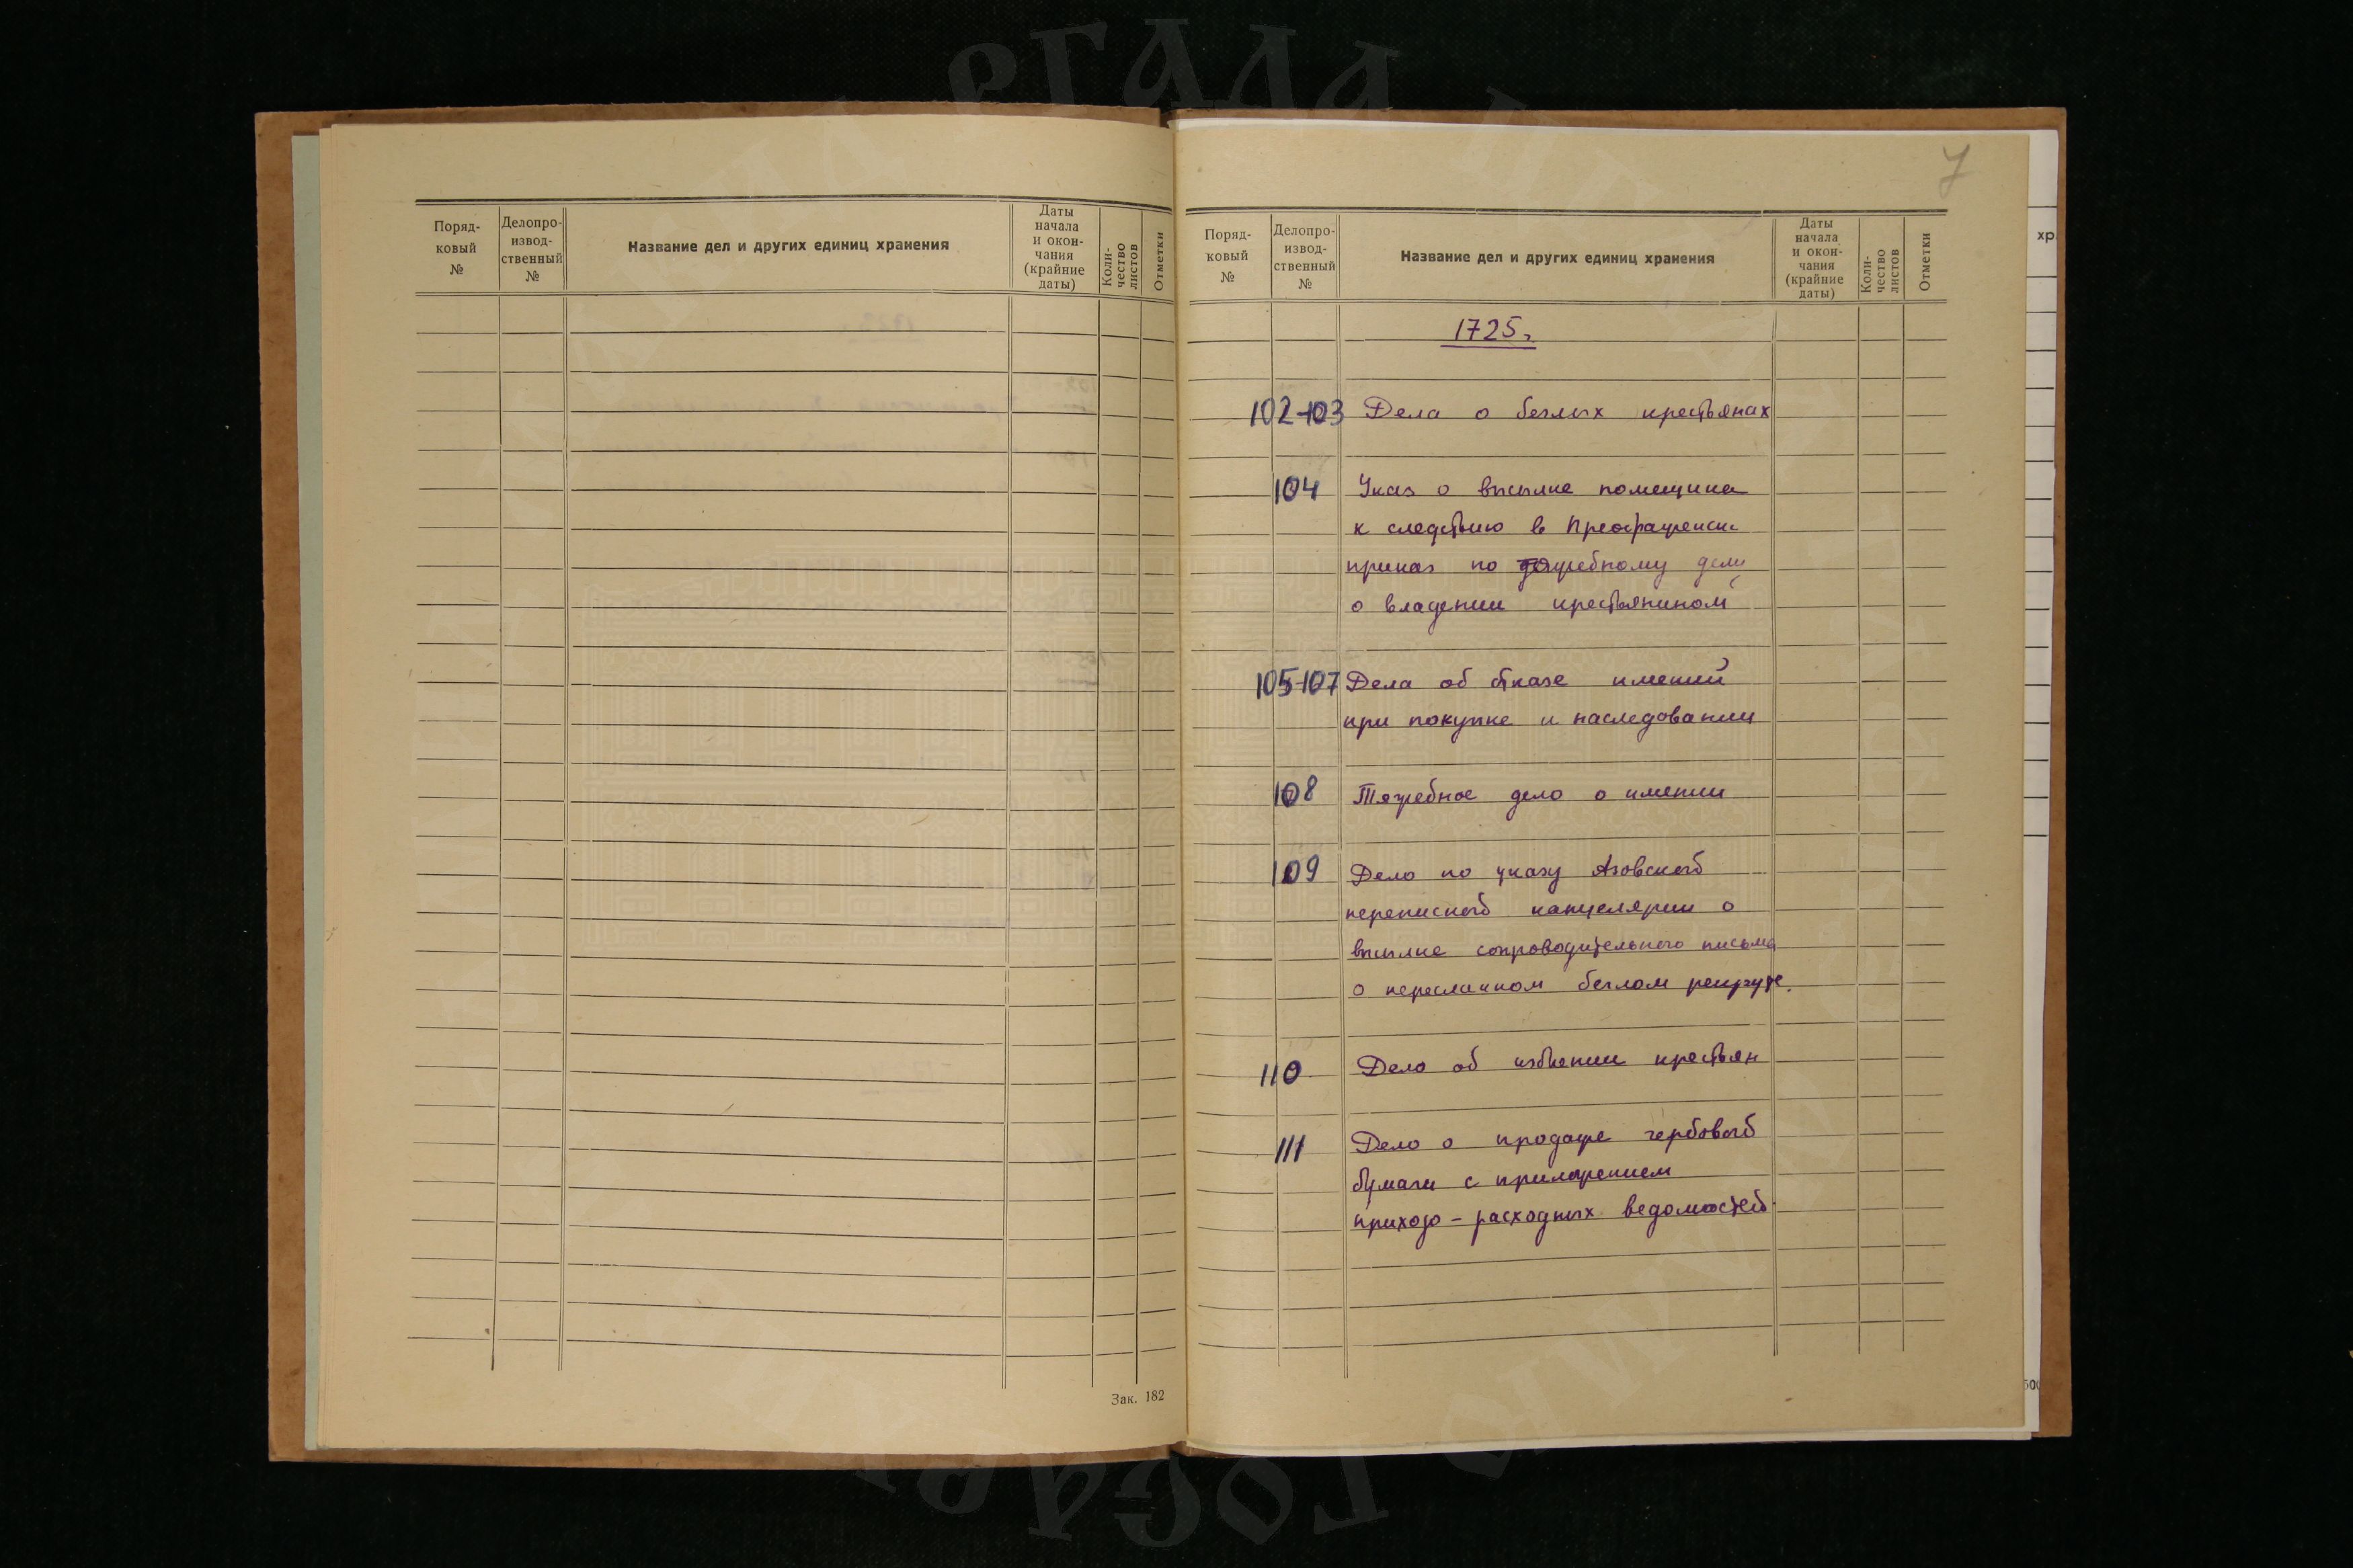 Поряд-
ковый
№
Делопро-
извод-
ственный
№
Название дел и других единиц хранения
Даты
начала
и окон-
чания
(крайние
даты)
Коли-
чество
листов
Отметки
Зак. 182
7
Поряд-
ковый
№
Делопро-
извод-
ственный
№
Название дел и других единиц хранения
Даты
начала
и окон-
чания
(крайние
даты)
Коли-
чество
листов
Отметки
1725г.
102-103 Дела о беглых крестьянах
104 Указ о высылке помещика
к следствию в Преображенск.
приказ по тяжебному делу
о владении крестьянином
105-107 Дела об отказе имений
при покупке и наследовании
108 Тяжебное дело о имении
109 Дело по указу Азовской
переписной канцелярии о
высылке сопроводительного письма
о пересланном беглом рекруте.
110 Дело об избиении крестьян
111 Дело о продаже гербовой
бумаги с приложением
приходо-расходных ведомостей.
хр
500
РГАДА